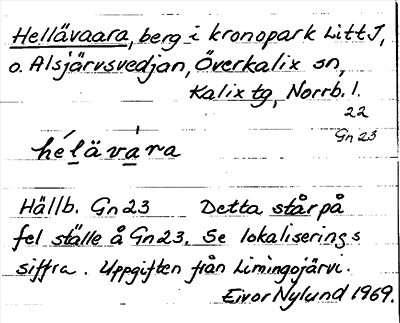 Hellävaara, berg i kronopark Litt J,
o. Alsjärvsvedjan, Överkalix sn,
Kalix tg, Norrb. l.
22
Gn 23
hélävára
Hällb. Gn 23 Detta står på
fel ställe å Gn 23. Se lokaliserings
siffra. Uppgiften från Limingojärvi.
Eivor Nylund 1969.